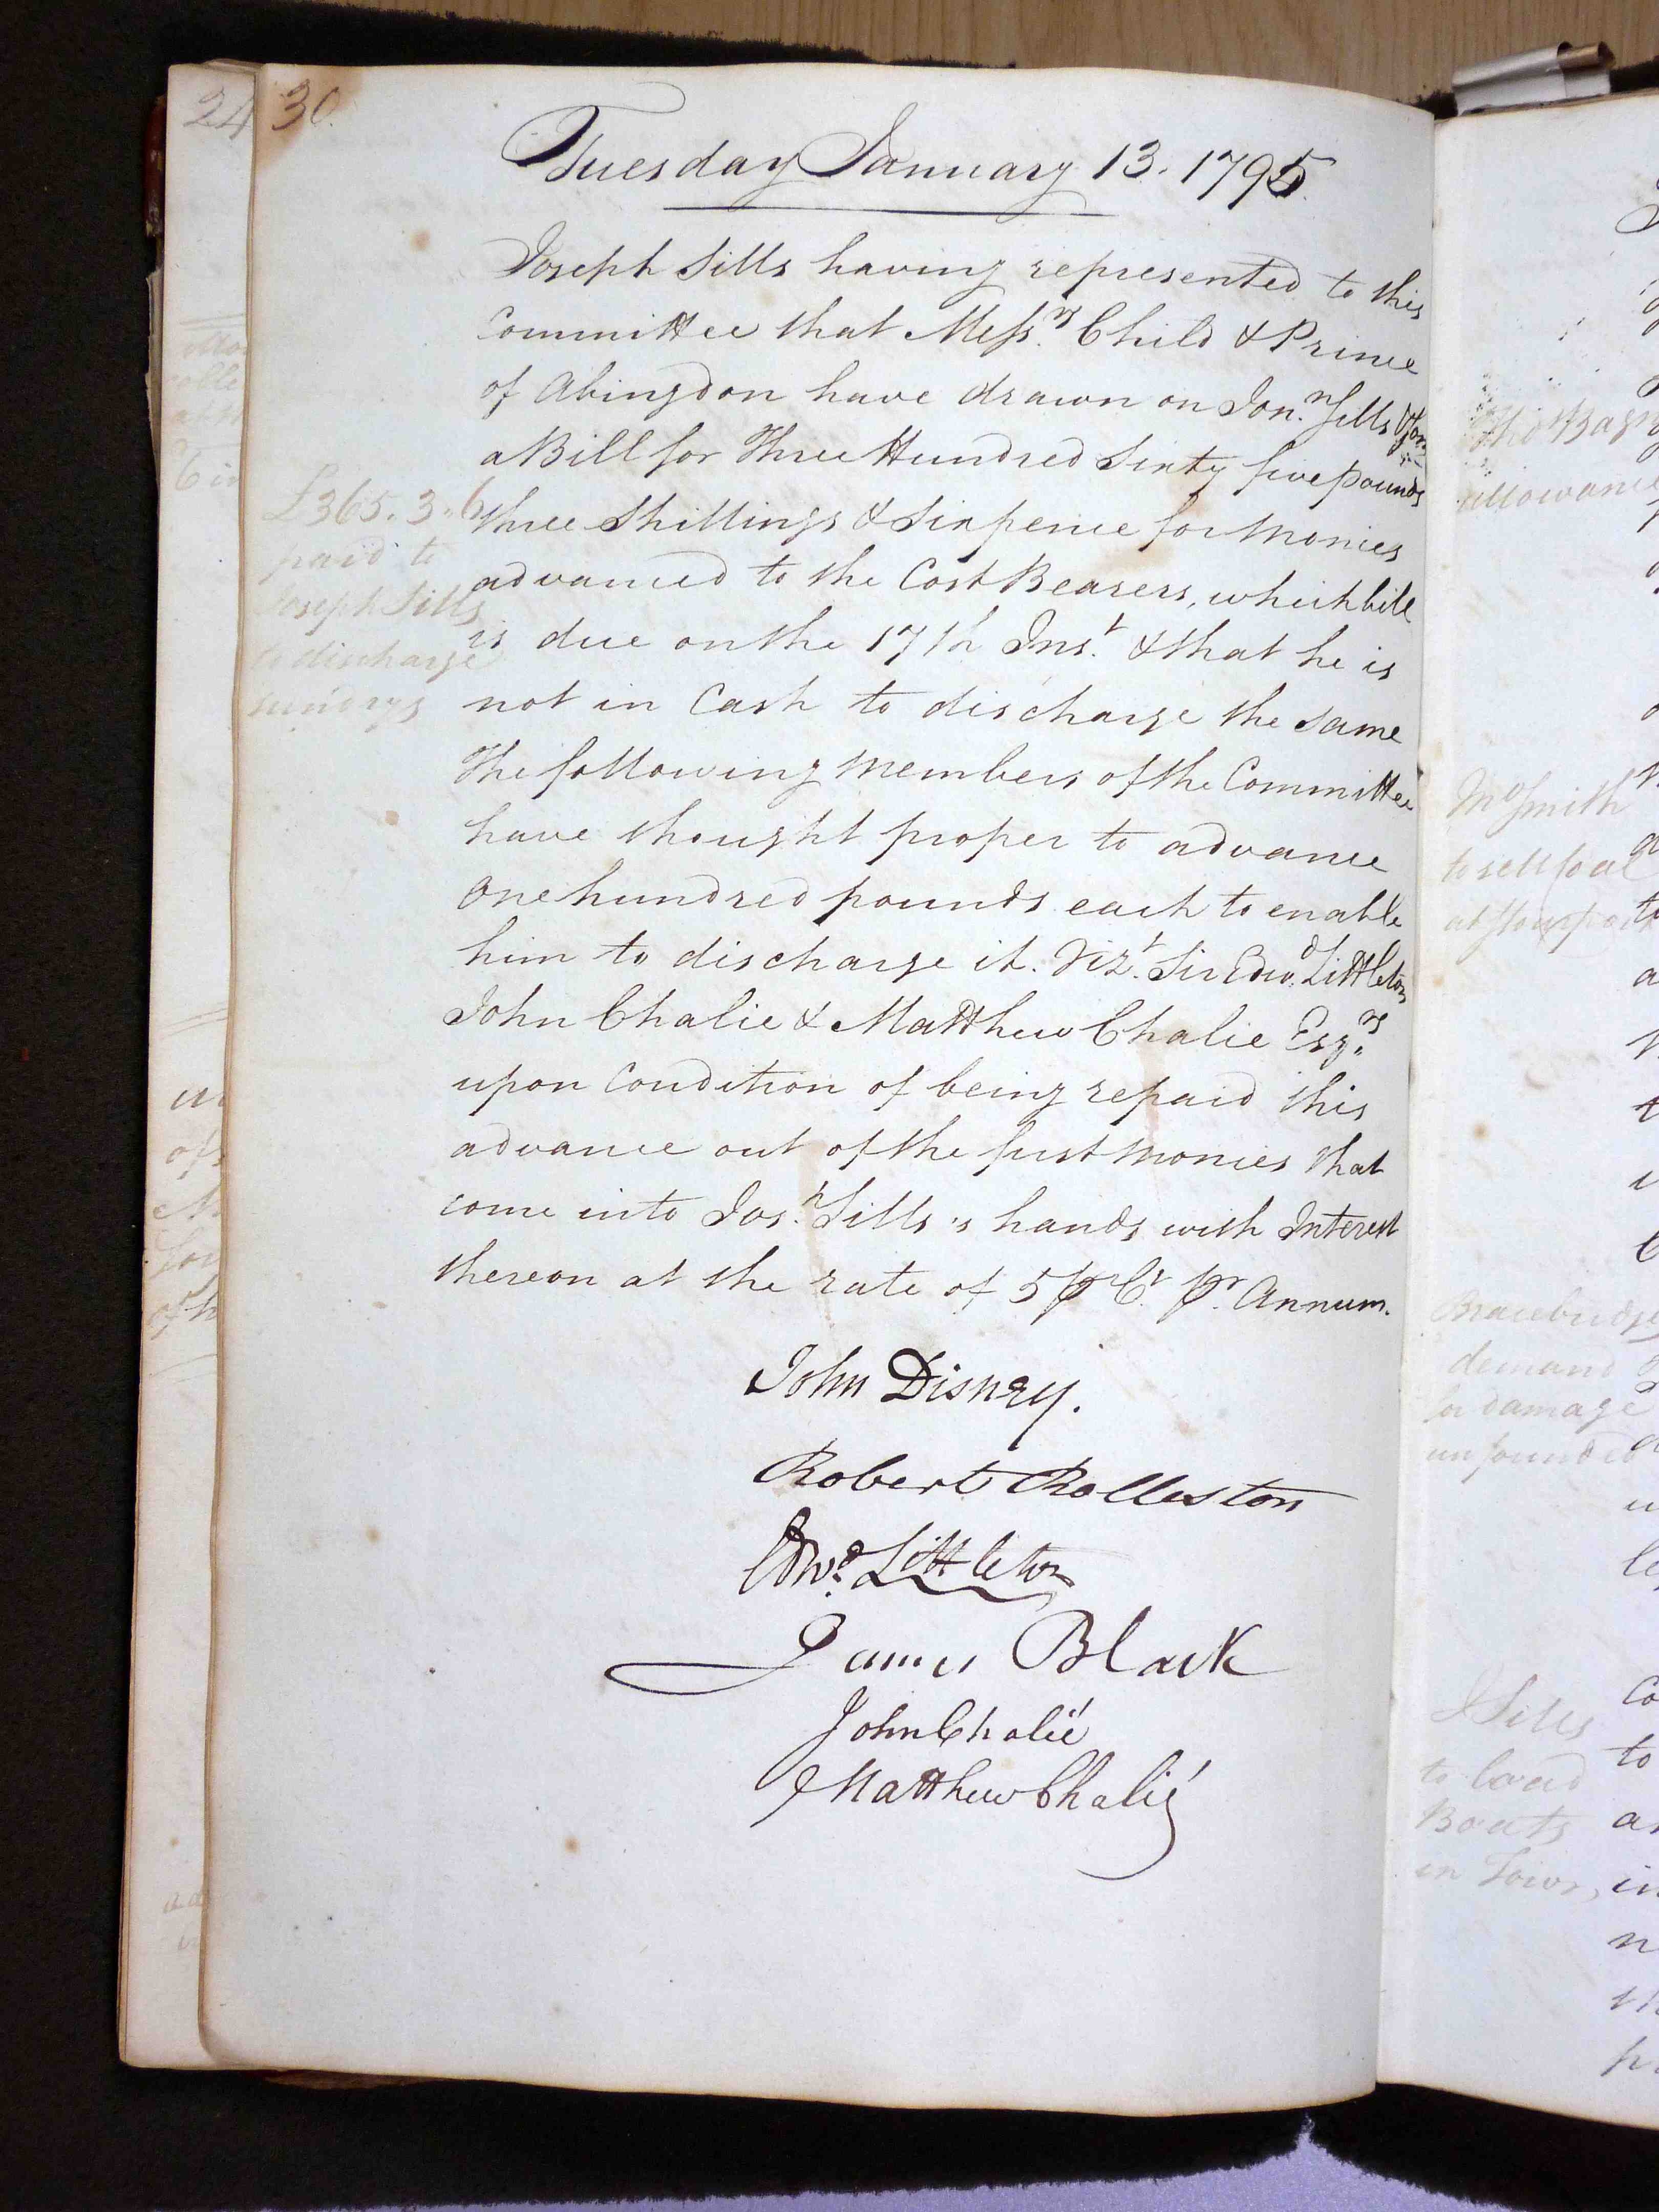 24
30.
Tuesday January 13. 1795.
Joseph Sills having represented to this
Committee that Messrs. Child & Prince
of Abingdon have drawn on Jon.n Sills & Son
a Bill for Three Hundred Sixty five pounds
three Shillings & Sixpence for Monies
advanced to the Cost Bearers, which bill
is due on the 17th Inst. & that he is
not in Cash to discharge the same
The following Members of the Committee
have thought proper to advance
One hundred pounds each to enable
him to discharge it. Vizt. Sir Edwd. Littleton
John Chalie & Matthew Chalie Esqrs.
upon Condition of being repaid this
advance out of the first Monies that
come into Jos.h Sills's hands with Interest
thereon at the rate of 5 pr Ct. pr. Annum.
£365. 3. 6
paid to
Joseph Sills
to discharge
sundrys
John Disney.
Robert Rolleston
Edwd. Littleton
James Black
John Chalié
Matthew Chalié
allowance
Mr Smith
to sell Coal
at Stourport
Bracebridges
demand
for damage
unfounded
J Sills
to load
Boats
in Town,